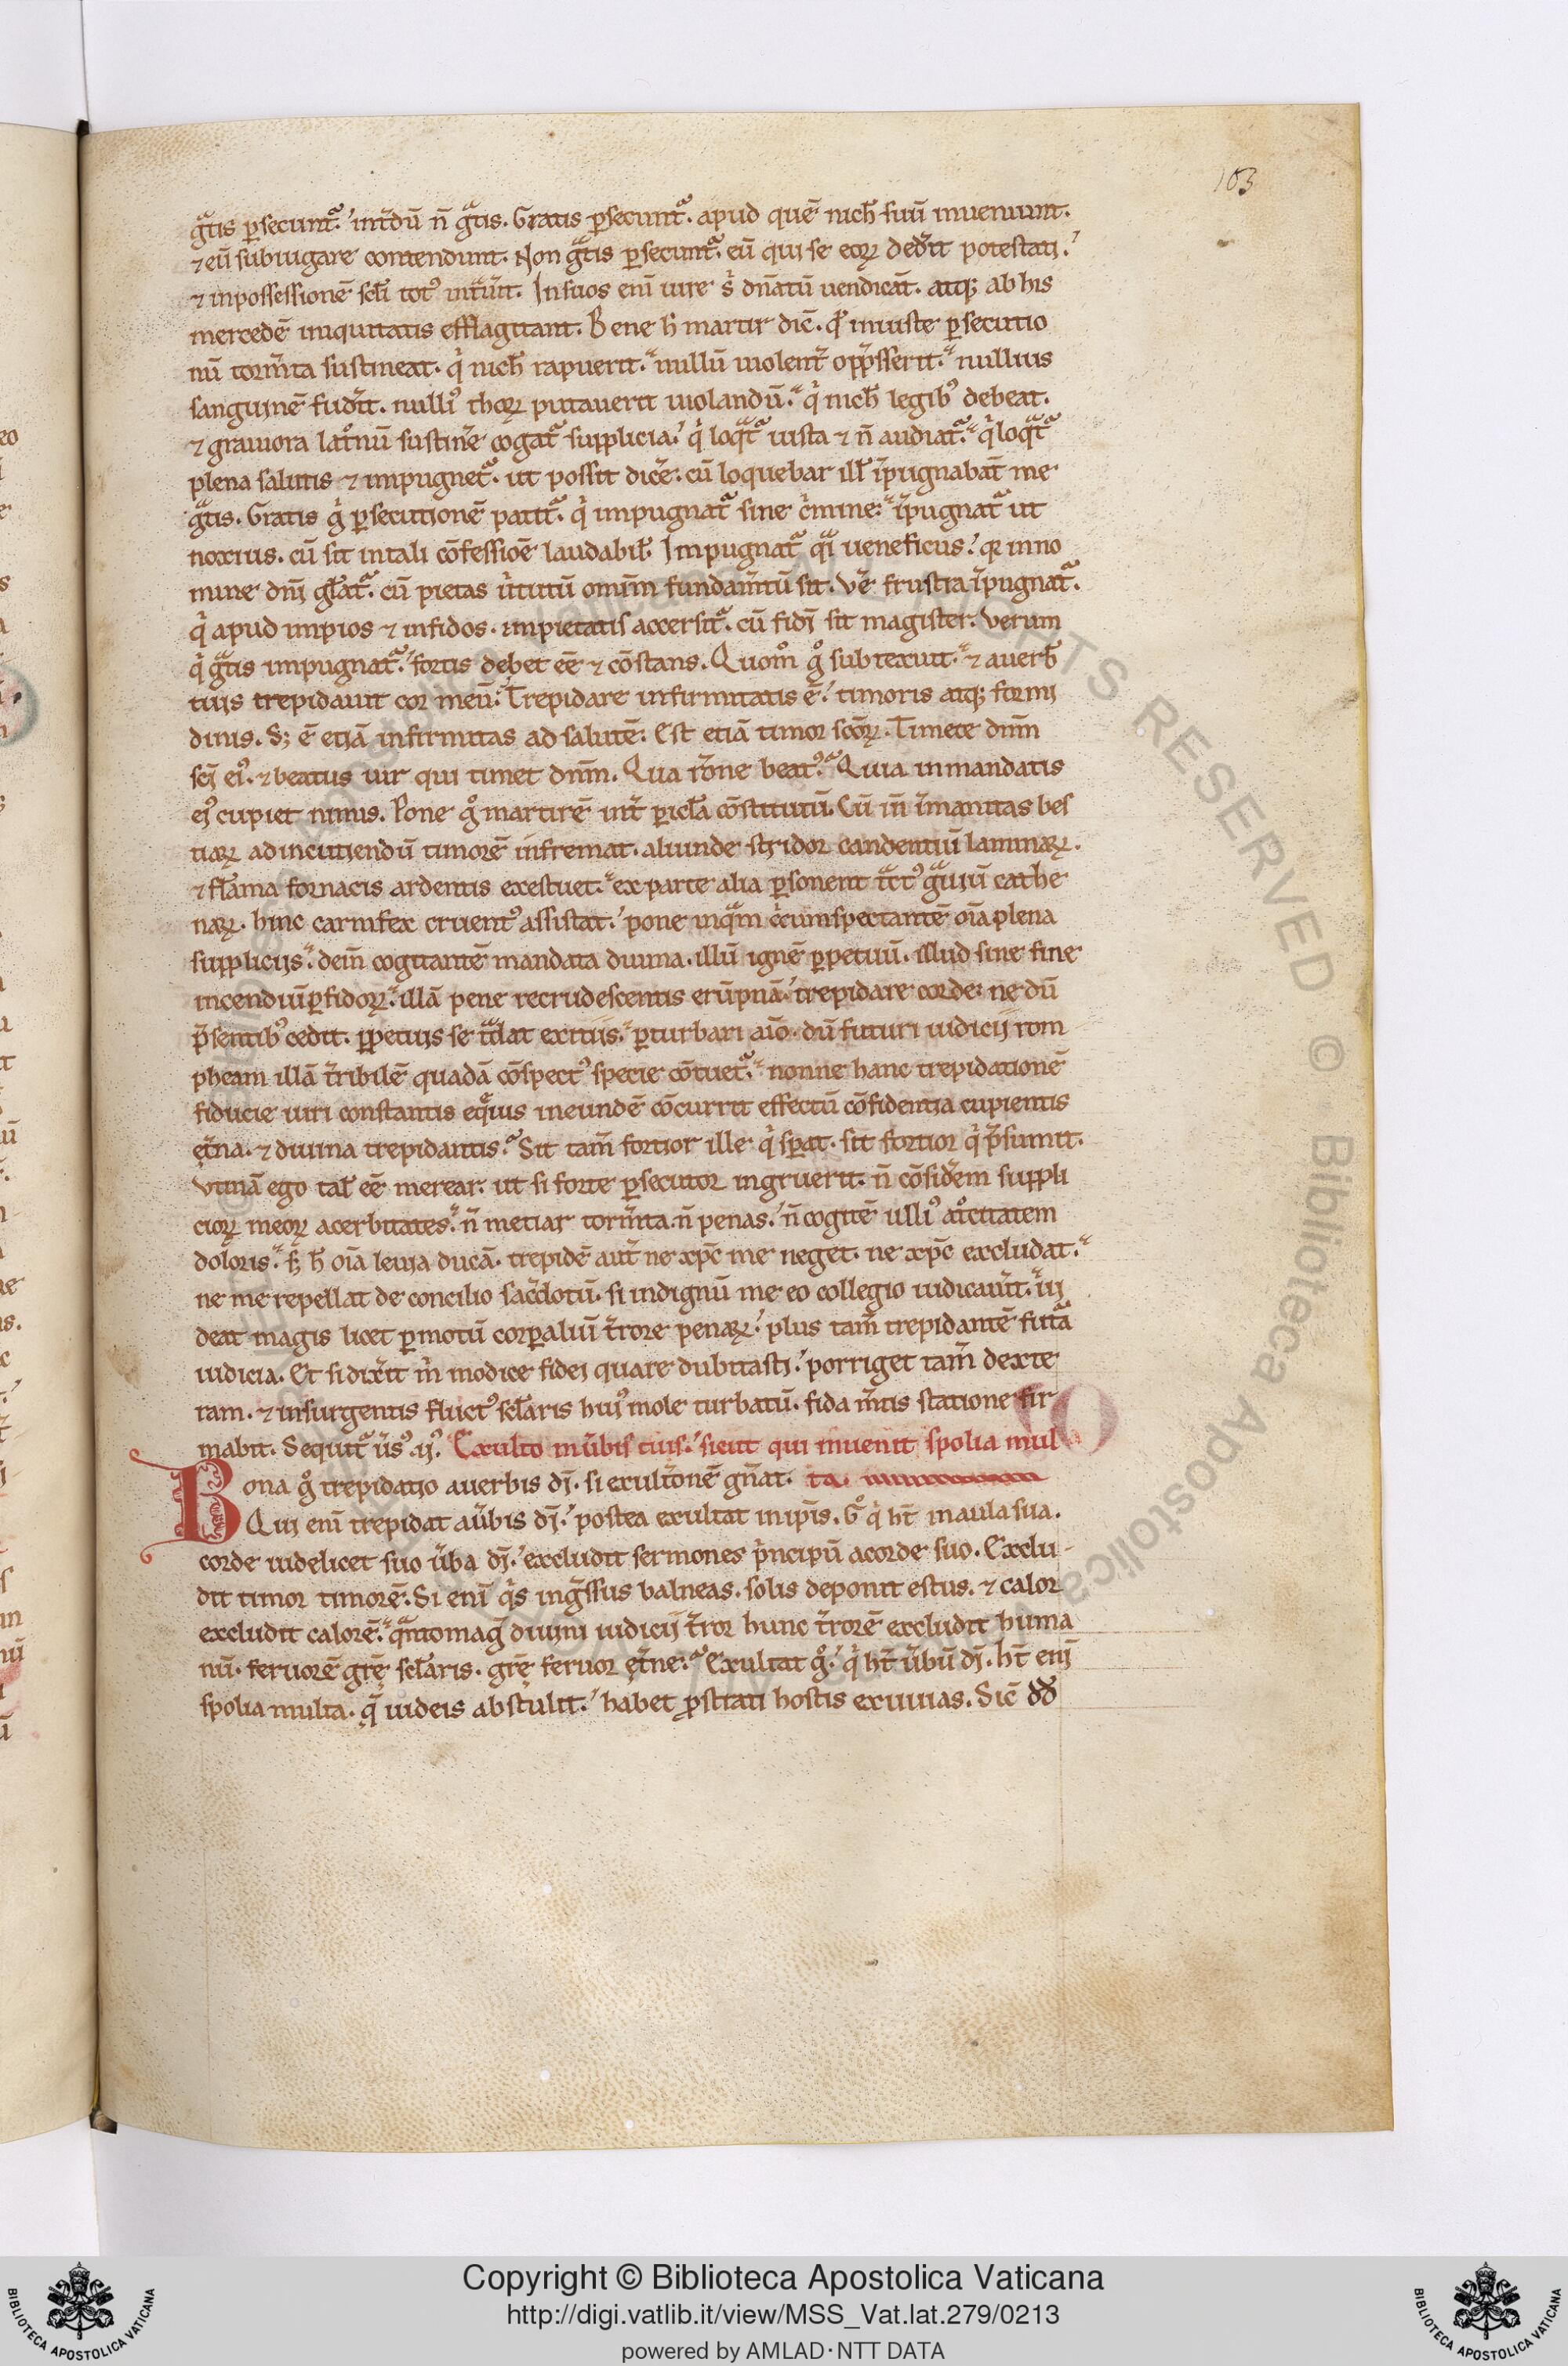 103
gͣtis ꝑsecunt᷑. int̄dū n̄ gͣtis. Gratis ꝑsecunt᷑. apud quē nich̄ suū inueniunt.
⁊ eū subiugare contendunt. Non gͣtis ꝑsecunt᷑. eū qui se eoꝝ ded̄it potestati.
⁊ inpossessionē scl̄i totꝰ int̄uit. In suos enī iure s̓ dn̄atū uendicāt. atqꝫ ab his
mercedē iniquitatis efflagitant. Bene h̄ martir dic̄. ꝙ iniuste ꝑsecutio
nū torm̄ta sustineat. qͥ nich̄ rapuerit. nullū uiolent̄ opp̄sserit. nullius
sanguinē fud̄it. nulliꝰ thoꝝ putauerit uiolandū. qͥ nich̄ legibꝰ debeat.
⁊ grauiora latͦnū sustin̄e cogat᷑ supplicia. qͥ loqͣt᷑ iusta ⁊ n̄ audiat᷑. qͥ loqͣt᷑
plena salutis ⁊ impugnet᷑. ut possit dic̄e. cū loquebar ill̄ īpugnabāt me
gͣtis. Gratis gͥ ꝑsecutionē patit᷑. qͥ impugnat᷑ sine cͥmine. īpugnat᷑ ut
noxius. cū sit in tali cōfessiōe laudabil̄. Impugnat᷑ qͣi ueneficus. qͥ in no
mine dn̄i gl̄at᷑. cū pietas ūtutū omīm fundam̄tū sit. Ve͛ frustra īpugnat᷑.
qͥ apud impios ⁊ infidos. impietatis accersit᷑. cū fidī sit magister. Verum
qͥ gͣtis impugnat᷑. fortis debet eē ⁊ cōstans. Quom̊ gͦ subtexuit. ⁊ a uerb̄
tuis trepidauit cor meū. Trepidare infirmitatis ē. timoris atqꝫ formi
dinis. Sꝫ ē etiā infirmitas ad salutē. Est etiā timor scōꝝ. Timete dn̄m
scī eiꝰ. ⁊ beatus uir qui timet dn̄m. Qua rōne beatꝰ. Quia in mandatis
eiꝰ cupiet nimis. Pone gͦ martirē int̄ pericl̄a cōstitutū. Cū in̄ īmanitas bes
tiaꝝ ad incutiendū timorē infremat. aliunde stridor candentiū laminaꝝ.
⁊ fl̄ama fornacis ardentis exestuet. ex parte alia ꝑsonent tͣctꝰ gͣuiū cathe
naꝝ. hinc carnifex cruentꝰ assistat. pone inqͣm cͥcumspectantē oīa plena
suppliciis. dein̄ cogitantē mandata diuina. illū ignē ꝑpetuū. illud sine fine
incendiū ꝑfidoꝝ. illā pene recrudescentis erūpnā. trepidare corde. ne dū
p̄sentibꝰ cedit. ꝑpetuis se tͣdat exitiis. ꝑturbari aīo. dū futuri iudicii rom
pheam illā t̄ribilē quadā cōspectꝰ specie cōtuet᷑. nonne hanc trepidationē
fiducie uiri constantis eqͦuis in eundē cōcurrit effectū cōfidentia cupientis
ęt̄na. ⁊ diuina trepidantis. Sit tam̄ fortior ille qͥ sꝑat. sit fortior qͥ p̄sumit.
Vtinā ego tal̄ eē merear. ut si forte ꝑsecutor ingruerit. n̄ cōsid̄em suppli
cioꝝ meoꝝ acerbitates. n̄ metiar torm̄ta. n̄ penas. n̄ cogitē ulliꝰ atͦcitatem
doloris. sꝫ h̄ oīa leuia ducā. trepidē aut̄ ne xp̄c me neget. ne xp̄c excludat.
ne me repellat de concilio sac̄dotū. si indignū me eo collegio iudicau̓it. u̓i
deat magis licet ꝑmotū corꝑaliū t̄rore penaꝝ. plus tam̄ trepidantē futͣa
iudicia. Et si dix̄it m̄ modice fidei quare dubitasti. porriget tam̄ dexte
ram. ⁊ insurgentis fluctꝰ scl̄aris huiꝰ mole turbatū. fida m̄tis statione fir
mabit. Sequit᷑ ūsꝰ .ii. Exulto in ūbis tuis. sicut qui inuenit spolia mul
Bona gͦ trepidatio a uerbis dī. si exultōnē gn̄at. ta.
Qui enī trepidat a ūbis dī. postea exultat in ip̄is. Gͦ qͥ ht̄ in aula sua.
corde uidelicet suo ūba dī. excludit sermones pͥncipū a corde suo. Exclu-
dit timor timorē. Si enī qͥs inḡssus balneas. solis deponit estus. ⁊ calor
excludit calorē. qͣnto mag̓ diuini iudicii t̄ror hunc t̄rorē excludit huma
nū. feruorē gr̄ę scl̄aris. gr̄ę feruor ęt̄ne. Exultat gͦ. qͥ ht̄ ūbū dī. ht̄ enī
spolia multa. q̄ iudeis abstulit. habet ꝓstrati hostis exuuias. Sic̄ dd̄
Copyright © Biblioteca Apostolica Vaticana
http://digi.vatlib.it/view/MSS_Vat.lat.279/0213
powered by AMLAD·NTT DATA